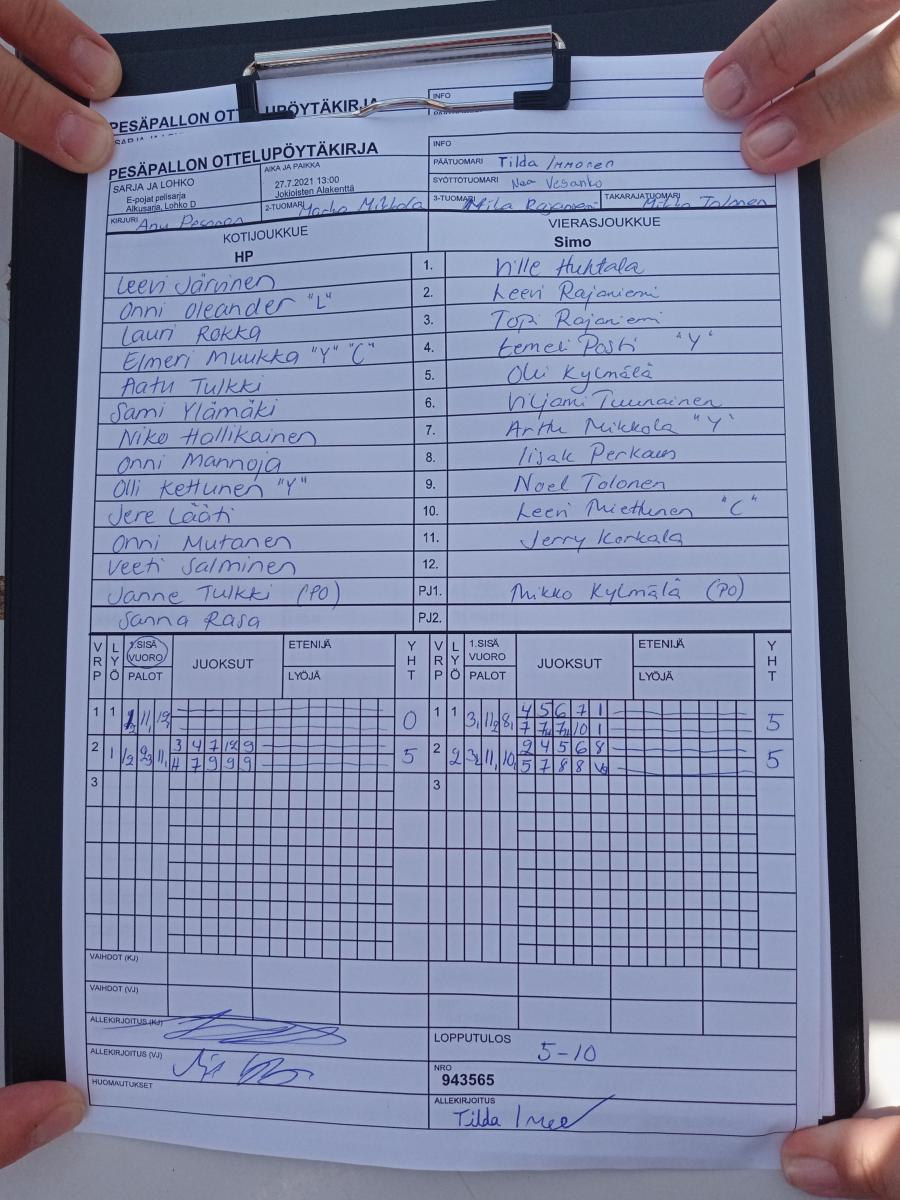 PESÄPALLON OTTELUPÖYTÄKIRJA
INFO
PESÄPALLON OTTELUPÖYTÄKIRJA
INFO
SARJA JA LOHKO
E-pojat pelisarja
Alkusarja, Lohko D
AIKA JA PAIKKA
27.7.2021 13:00
Jokioisten Alakenttä
PÄÄTUOMARI Tilda Immonen
SYÖTTÖTUOMARI Nea Vesanko
KIRJURI Anu Pesonen
2-TUOMARI Mikkola
3-TUOMARI Mila Rajaniemi
TAKARAJATUOMARI Mikko Tolonen
KOTIJOUKKUE
HP
VIERASJOUKKUE
Simo
Leevi Järvinen 1. Ville Huhtala
Onni Oleander "L" 2. Leevi Rajaniemi
Lauri Rokka 3. Topi Rajaniemi
Elmeri Muukka "Y" "C" 4. Eemeli Posti "Y"
Aatu Tulkki 5. Olli Kylmälä
Sami Ylämäki 6. Viljami Tuunainen
Niko Hallikainen 7. Arttu Mikkola "Y"
Onni Mannoja 8. Iisak Perkaus
Olli Kettunen "Y" 9. Noel Tolonen
Jere Lääti 10. Leevi Miettunen "C"
Onni Mutanen 11. Jerry Korkala
Veeti Salminen 12.
Janne Tulkki (PO) PJ1. Mikko Kylmälä (PO)
Sanna Rasa PJ2.
VRP LYÖ 1.SISÄ VUORO PALOT JUOKSUT ETENIJÄ LYÖJÄ YHT VRP LYÖ 1.SISÄ VUORO PALOT JUOKSUT ETENIJÄ LYÖJÄ YHT
1 1 0 1 1 4 5 6 7 1 5
2 1 3 4 7 12 9 5 2 2 2 4 5 6 8 5
4 7 9 9 9
3 3
VAIHDOT (KJ)
VAIHDOT (VJ)
ALLEKIRJOITUS (KJ)
LOPPUTULOS
5-10
ALLEKIRJOITUS (VJ)
NRO
943565
HUOMAUTUKSET
ALLEKIRJOITUS
Tilda